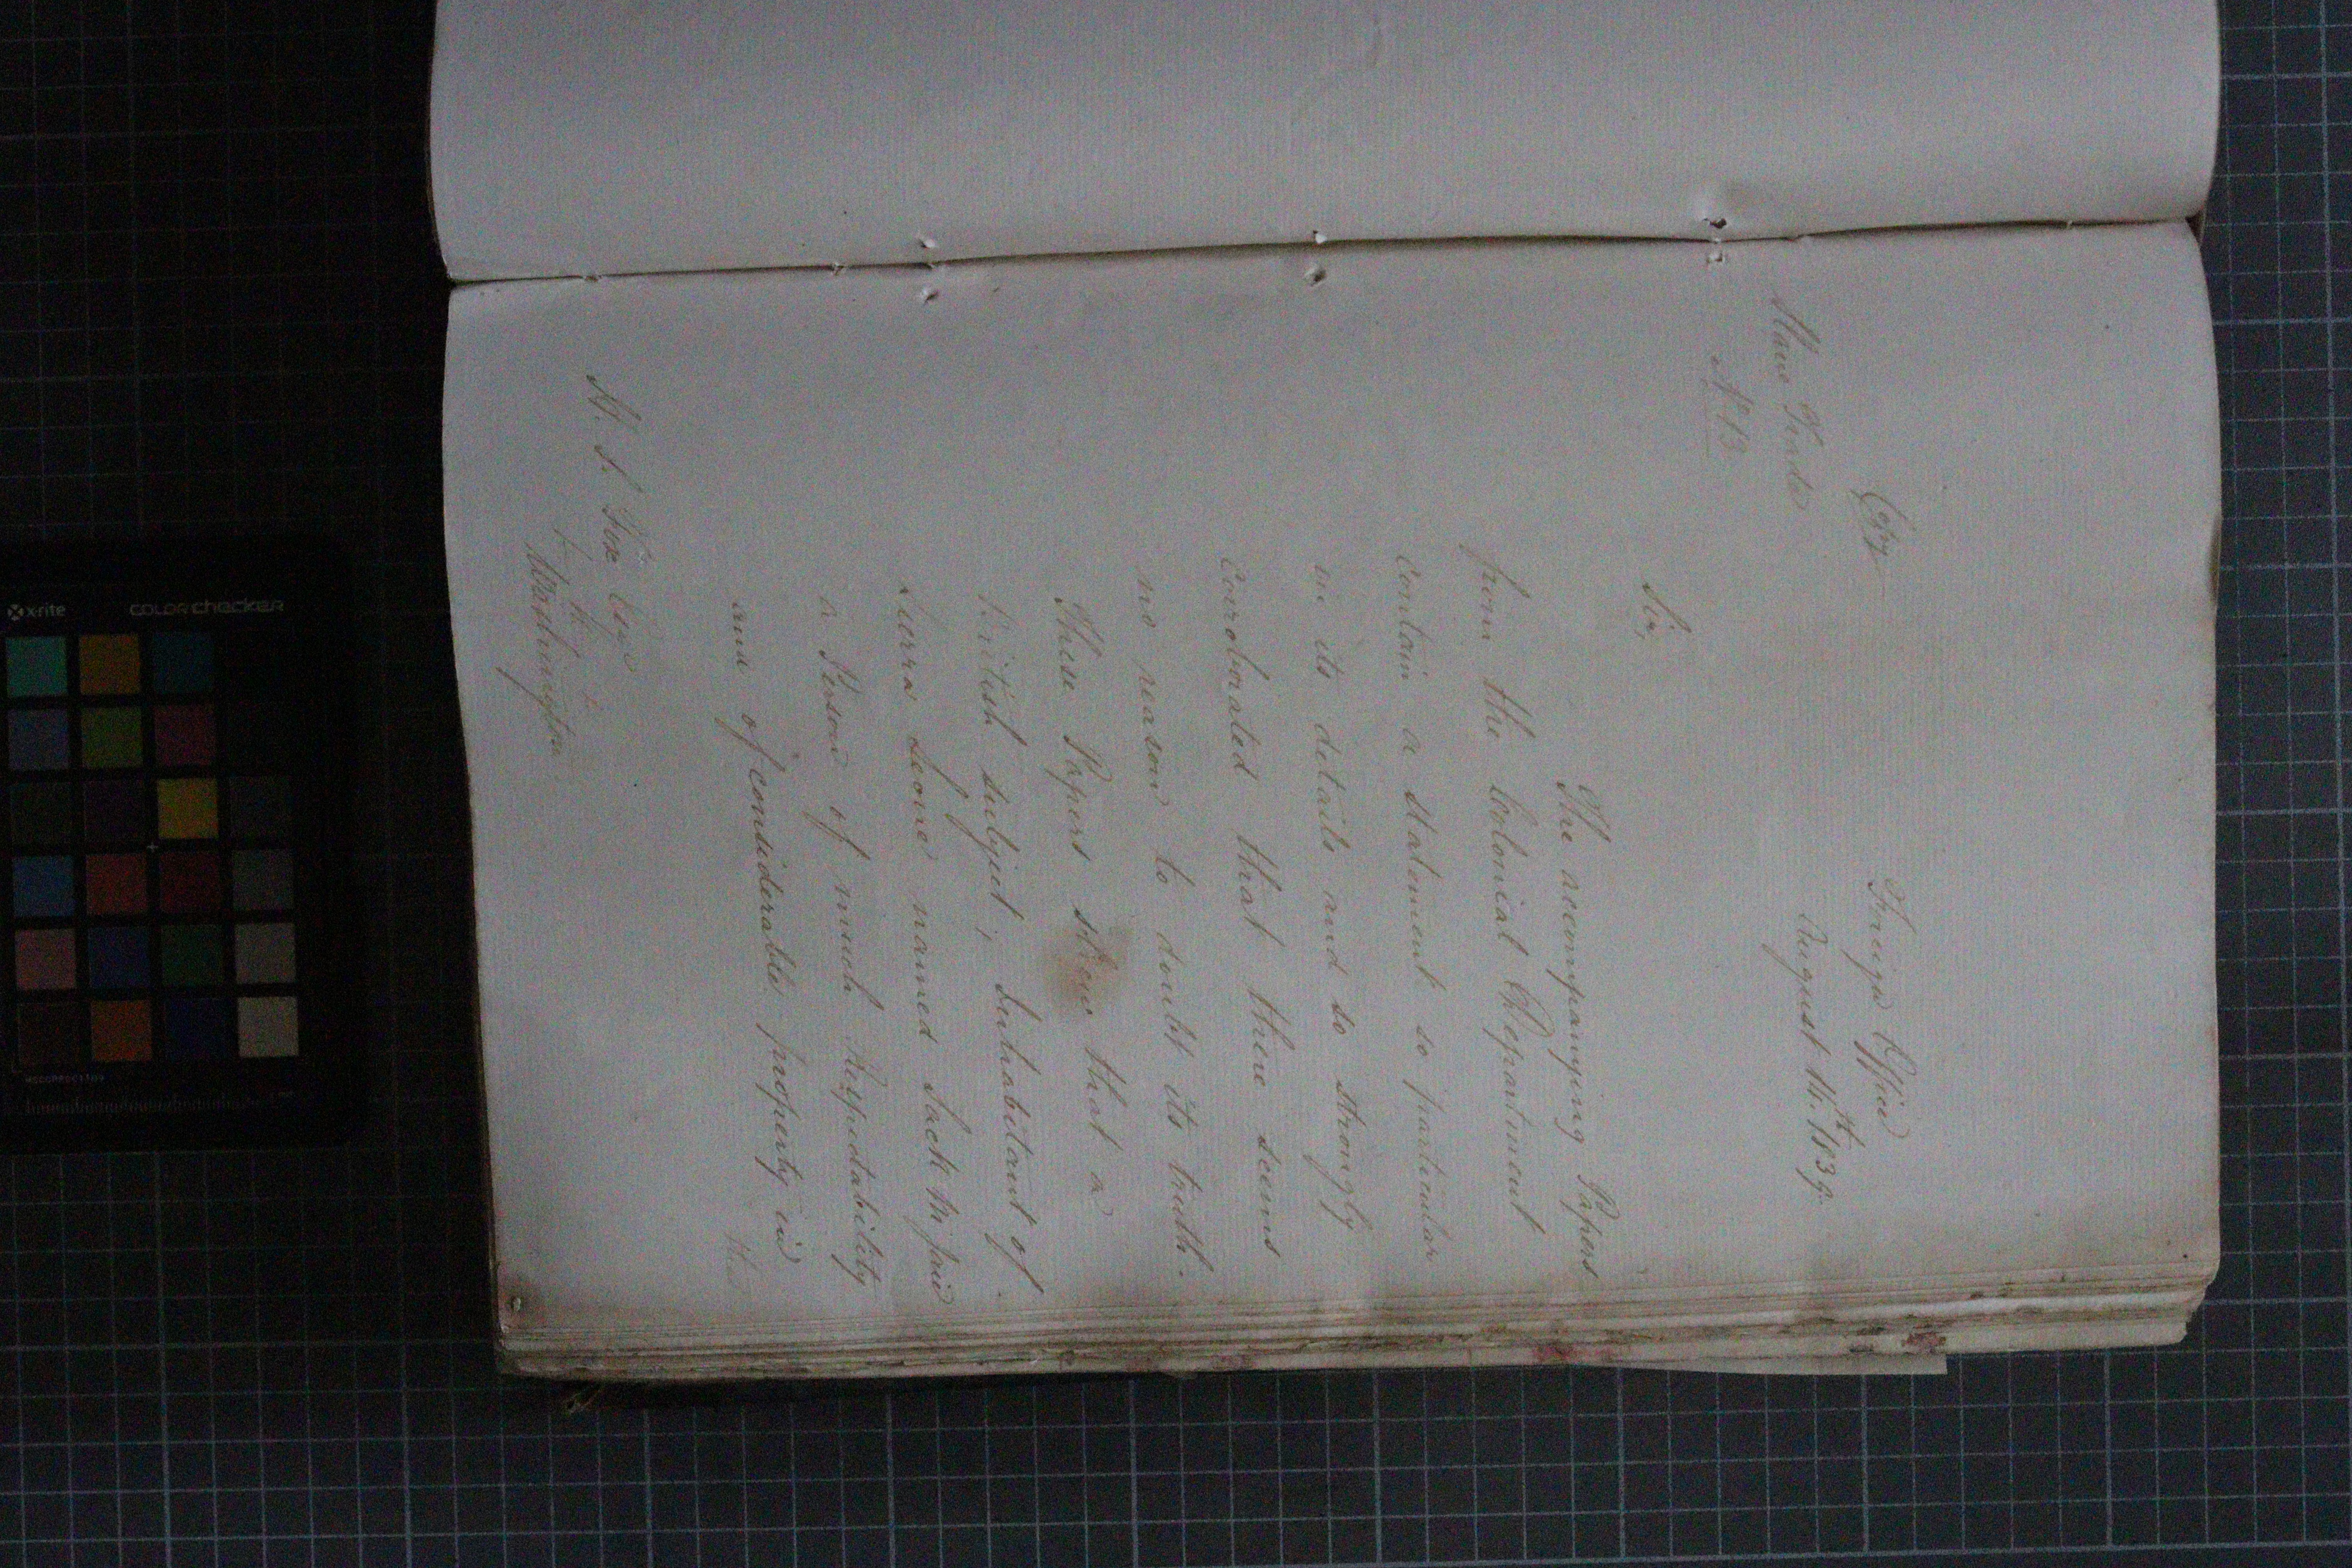 Copy
Foreign Office
August 16.th 1839.
Slave Trade
N° 13
Sir,
The accompanying Papers
from the Colonial Department
contain a statement so particular
in its details and so strongly
corroborated that there seems
no reason to doubt its truth.
These Papers shew that a
British subject, Inhabitant of
Sierra Leone named Jack
a Person of much Respectability
and of considerable property in
the
H. S. Fox Esqre
&c &c &c
Washington.
x-rite
colorchecker